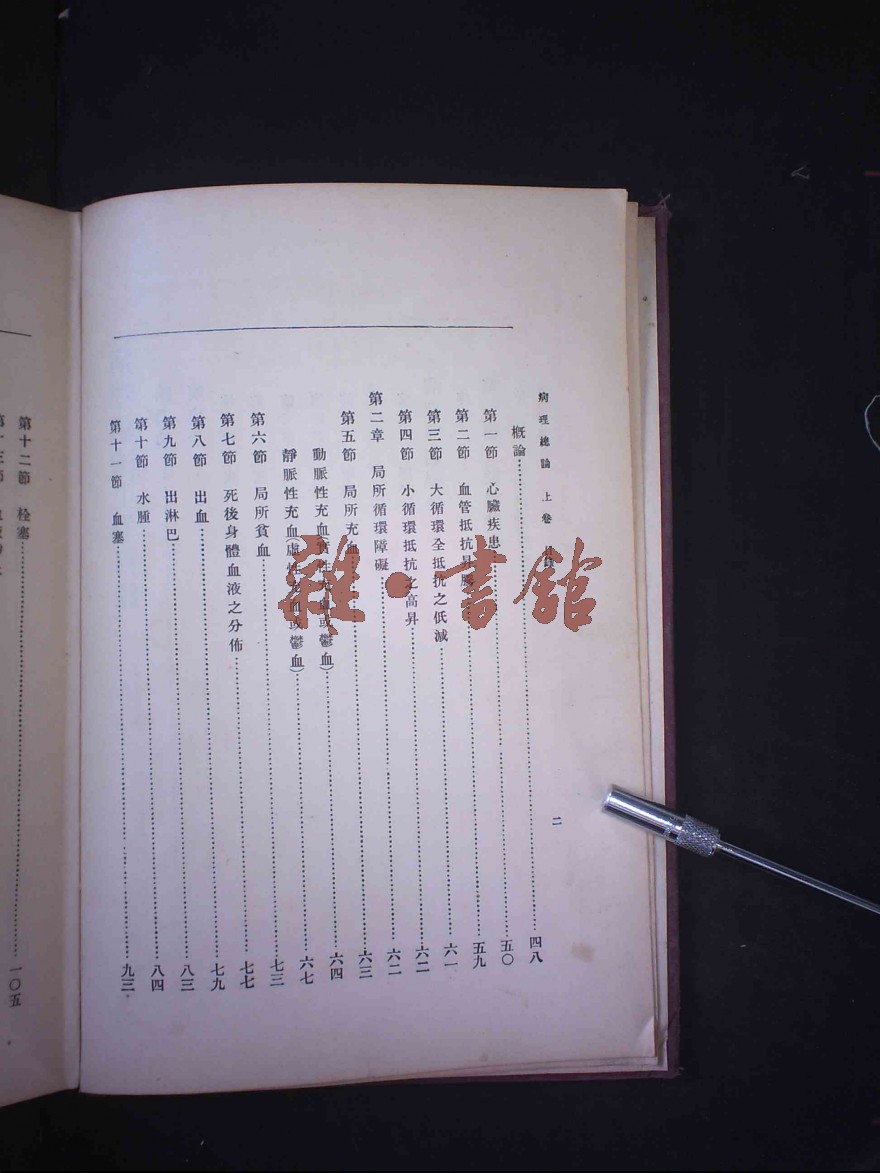 病理總論　上卷　目錄
二
概論……四八
第一節　心臟疾患……五〇
第二節　血管抵抗昇騰……五九
第三節　大循環全抵抗之低減……六一
第四節　小循環抵抗之高昇……六二
第二章　局所循環障礙……六二
第五節　局所充血……六三
動脈性充血(實性充血或鬱血)……六四
靜脈性充血(虛性充血或鬱血)……六七
第六節　局所貧血……七三
第七節　死後身體血液之分佈……七七
第八節　出血……七九
第九節　出淋巴……八三
第十節　水腫……八四
第十一節　血塞……九三
第十二節　栓塞……一〇五
雜·書館